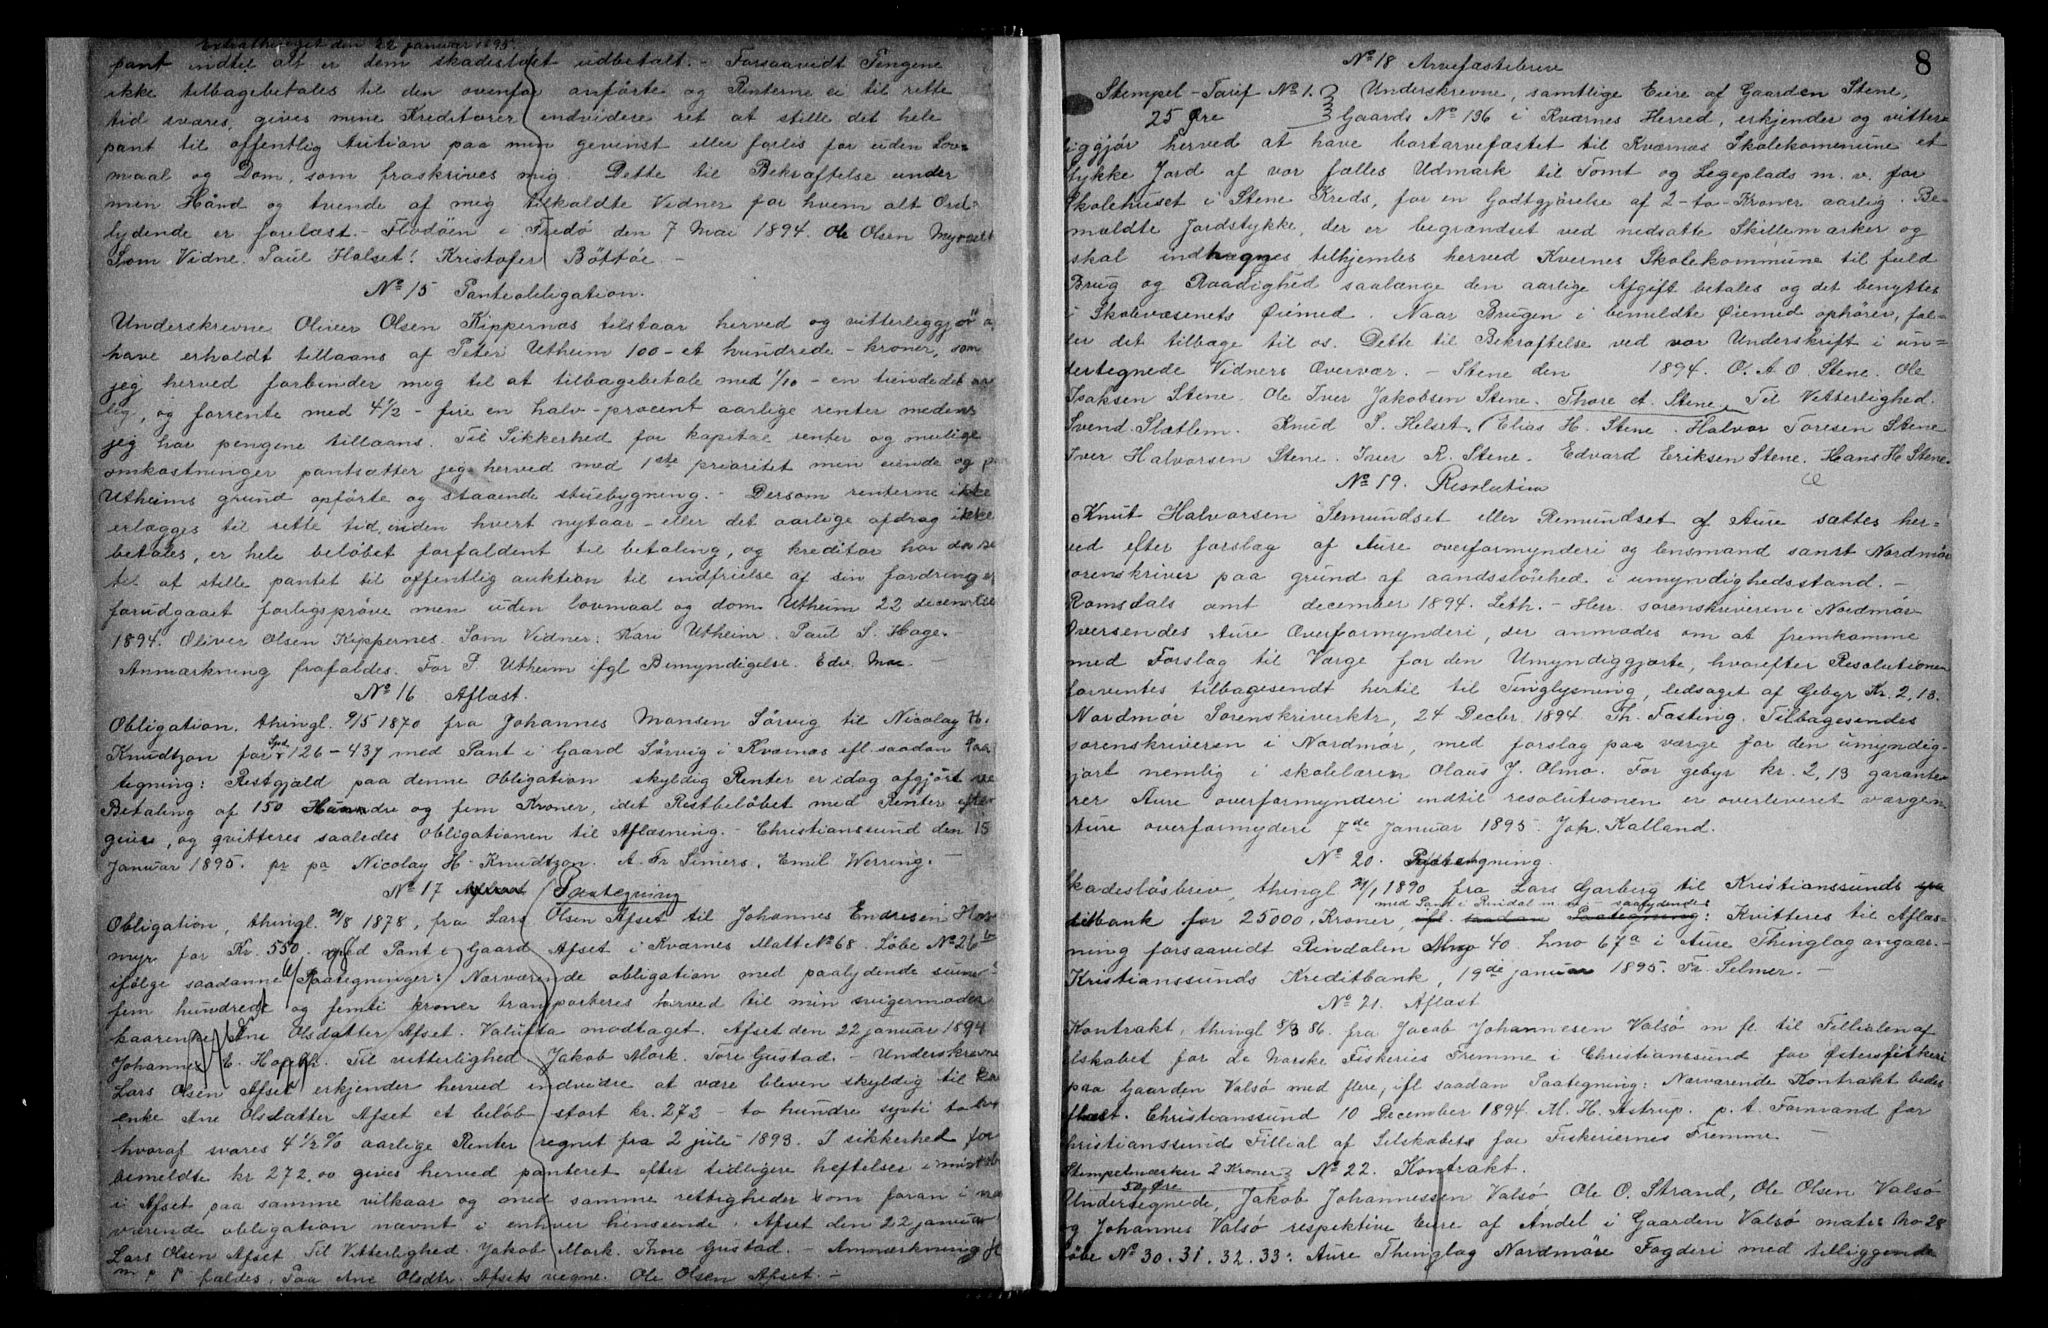 Extrathinget den 22 januar 1895.
pant indtil alt er dem skadesløst udbetalt. - Forsaavidt Pengene
ikke tilbagebetales til den ovenfor anførte og Renterne ei til rette
tid svares, gives mine Kreditorer endvidere ret at stille det hele
pant til offentlig Auction paa min gevinst eller forlis for uden Lov-
maal og Dom, som fraskrives mig. Dette til Bekræftelse under
min Hånd og tvende af mig tilkaldte Vidner for hvem alt Ord-
lydende er forelæst. - Flodöen i Fredö den 7 Mai 1894. Ole Olsen
Som Vidne. Paul Halset! Kristofer Böttöe. -
No 15 Panteobligation.
Underskrevne Oliver Olsen Kippernæs tilstaar herved og vitterliggjör
have erholdt tillaans af Peter Utheim 100 - et hundrede - kroner, som
jeg herved forbinder mig til at tilbagebetale med 1/10 - en tiendedel aar
lig, og forrente med 4 1/2 - fire en halv - procent aarlige renter medens
jeg har pengene tillaans. Til Sikkerhed for kapital renter og mulige
omkostninger pantsætter jeg herved med 1ste prioritet min eiende og paa
Utheims grund opførte og staaende stuebygning. - Dersom renterne ikke
erlægges til rette tid, inden hvert nytaar - eller det aarlige afdrag ikke
betales, er hele beløbet forfaldent til betaling, og kreditor har da
til at stille pantet til offentlig auktion til indfrielse af sin fordring
forudgaaet forligsprøve men uden lovmaal og dom. Utheim 22 december
1894. Oliver Olsen Kippernes. Som Vidner: Kari Utheim. Paul S. Hage. -
Anmærkning frafaldes. For P. Utheim ifgl Bemyndigelse. Edv. Moe. -
No 16 Aflæst.
Obligation, thingl. 9/5 1870 fra Johannes Monsen Sörvig til Nicolay H.
Knudtzon for Spd. 126 - 437 med Pant i Gaard Sörvig i Kværnæs efl. saadan Paa
tegning: Restgjæld paa denne Obligation skyldig Renter er idag afgjört ve
Betaling af 150 Hundre og fem Kroner, idet Restbeløbet med Renter efter
gives, og qvitteres saaledes Obligationen til Aflæsning. - Christianssund den 15
Januar 1895. pr pa Nicolay H. Knudtzon. A. Fr. Simers. Emil Werring. -
No 17 Paategning
Obligation, thingl. 21/8 1878, fra Lars Olsen Afset til Johannes Endresen
myr for Kr. 550. med Pant i Gaard Afset i Kværnes Matt No 68. Löbe No 26 b
ifölge saadanne Paategninger: Nærværende obligation med paalydende sum
fem hundrede og femti kroner transporteres herved til min svigermoder
kaarenke Ane Olsdatter Afset. Valuta modtaget. Afset den 22 januar 1894
Johannes E. Til vitterlighed Jakob Mork. Tore Gustad. - Underskrevne
Lars Olsen Afset erkjender herved indvidre at være bleven skyldig til
enke Ane Olsdatter Afset et beløb stort kr. 272 - to hundre sytti to
hvoraf svares 4 1/2 % aarlige Renter regnet fra 2 juli 1893. I sikkerhed for
bemeldte kr 272,00 gives herved panteret efter tidligere heftelser i
i Afset paa samme vilkaar og med samme rettigheder som foran i nær
værende obligation nævnt i enhver henseende. Afset den 22 januar
Lars Olsen Afset. Til Vitterlighed. Jakob Mork. Thore Gustad. - Anmærkning
faldes. Paa Ane Olsdtr. Afsets vegne. Ole Olsen Afset. -
8
No 18 Arvefæstebrev
Stempel - Tarif No 1. Underskrevne, samtlige Eiere af Gaarden Stene,
25 Øre Gaards No 136 i Kværnes Herred, erkjender og vitter-
iggjör herved at have bortarvefæstet til Kværnæs Skolekommune et
tykke Jord af vor fælles Udmark til Tomt og Legeplads m. v. for
Skolehuset i Stene Kreds, for en Godtgjörelse af 2 - to - Kroner aarlig. Be-
mældte Jordstykke, der er begrændset ved nedsatte Skillemærker og
skal indhegnes tilhjemles herved Kvernes Skolekommune til fuld
Brug og Raadighed saalænge den aarlige Afgift betales og det benyttes
i Skolevæsenets Øiemed. Naar Brugen i bemeldte Øiemed ophörer, fal-
der det tilbage til os. Dette til Bekræftelse ved vor Underskrift i un-
dertegnede Vidners Overvær. - Stene den 1894. O. A. O. Stene. Ole
Isaksen Stene. Ole Iver Jakobsen Stene. Thore A. Stene. Til Vitterlighed.
Svend Slatlem. Knud S. Helset. (Elias H. Stene. Halvor Toresen Stene
Iver Halvorsen Stene. Iver R. Stene. Edvard Eriksen Stene. Hans H. Stene.
No 19. Resolution
Knut Halvorsen Semundset eller Remundset af Aure sættes her-
ved efter forslag af Aure overformynderi og lensmand samt Nordmör
sorenskriver paa grund af aandssløvhed i umyndighedsstand. -
Romsdals amt december 1894. Leth. - Herr. sorenskriveren i Nordmör
Oversendes Aure Overformynderi, der anmodes om at fremkomme
med Forslag til Værge for den Umyndiggjorte, hvorefter Resolutionen
forventes tilbagesendt hertil til Tinglysning, ledsaget af Gebyr Kr. 2,13.
Nordmör Sorenskriverktr, 24 Decbr. 1894. Th. Fasting. Tilbagesendes
sorenskriveren i Nordmör, med forslag paa værge for den umyndig-
gjort nemlig i skolelærer Olaus J. Olmo. For gebyr kr. 2,13 garante-
rer Aure overformynderi indtil resolutionen er overleveret værgen
Aure overformynderi 7de Januar 1895. Joh. Kalland.
No 20. Paategning.
Skadesløsbrev, thingl 1890 fra Lars Garberg til Kristianssunds
med Pant i Rindal m. v. - saalydende
ditbank for 25000, Kroner, efl. saadan Paategning: Kvitteres til Aflæs-
ning forsaavidt Rindalen Mno 40. Lno 67a i Aure Thinglag angaar. -
Kristianssunds Kreditbank, 19de januar 1895. Fr. Selmer. -
No 21. Aflæst
Kontrakt, thingl 8/3 86. fra Jacob Johannesen Valsö m fl. til Fillialen af
elskabet for de Norske Fiskeries Fremme i Christianssund for Østersfiskeri
paa Gaarden Valsö med flere, ifl saadan Paategning: Nærværende Kontrakt bedes
aflæst. Christianssund 10 December 1894. M. H. Astrup. p. t. Formand for
Christianssunds Fillial af Selskabets for Fiskeriernes Fremme. -
Stempelmærker 2 Kroner No 22. Kontrakt.
50 Øre
Undertegnede, Jakob Johannessen Valsö Ole O. Strand, Ole Olsen Valsö
og Johannes Valsö respektive Eiere af Andel i Gaarden Valsö mater No 28
Löbe No 30. 31. 32. 33: Aure Thinglag Nordmöre Fogderi med tilliggende